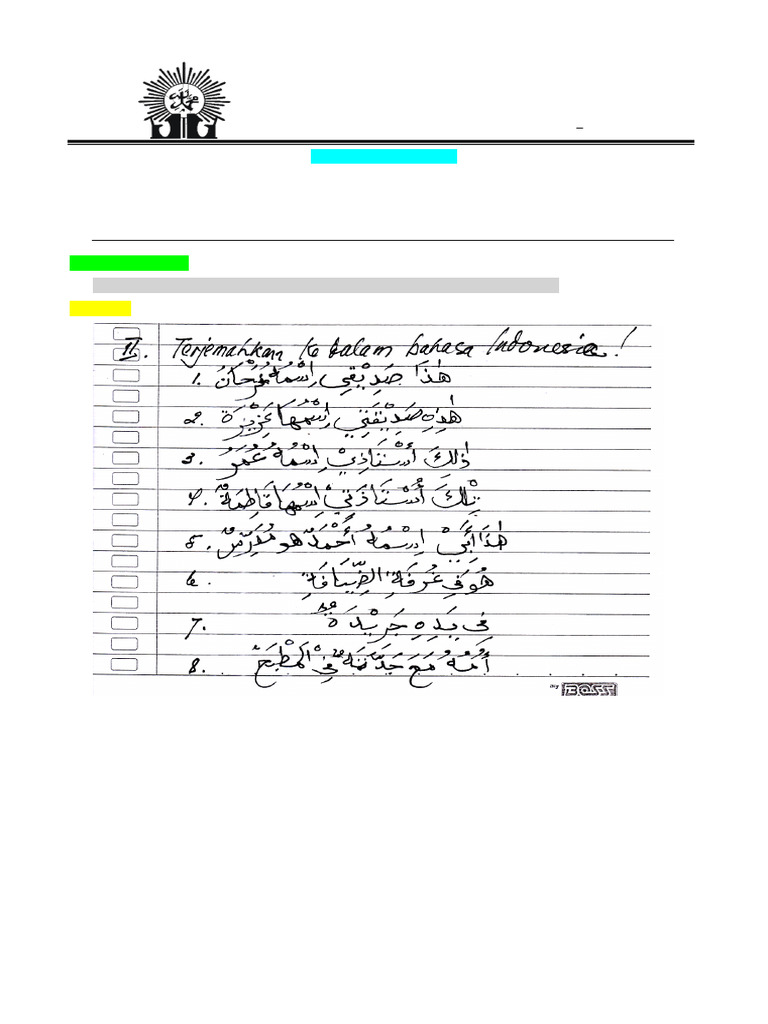 II. Terjemahkan ke dalam bahasa Indonesia!
1. هٰذَا صَدِيْقِي اِسْمُهُ فَرْحَانُ
2. هٰذِهِ صَدِيْقَتِي اِسْمُهَا عَزِيْزَة
3. ذٰلِكَ أُسْتَاذِيْ اِسْمُهُ عُمَرُ
4. تِلْكَ أُسْتَاذَتِيْ اِسْمُهَا فَاطِمَةٌ
5. هٰذَا أَبِيْ اِسْمُهُ أَحْمَدٌ هو مُدَرِّسٌ
6. هُوَ فِي غُرْفَةِ الضِّيَافَةِ
7. فِي يَدِهِ جَرِيْدَةٌ
8. أُمُّهُ مَعَ جَدَّتِهِ فِيْ الْمَطْبَخِ
my BOSS